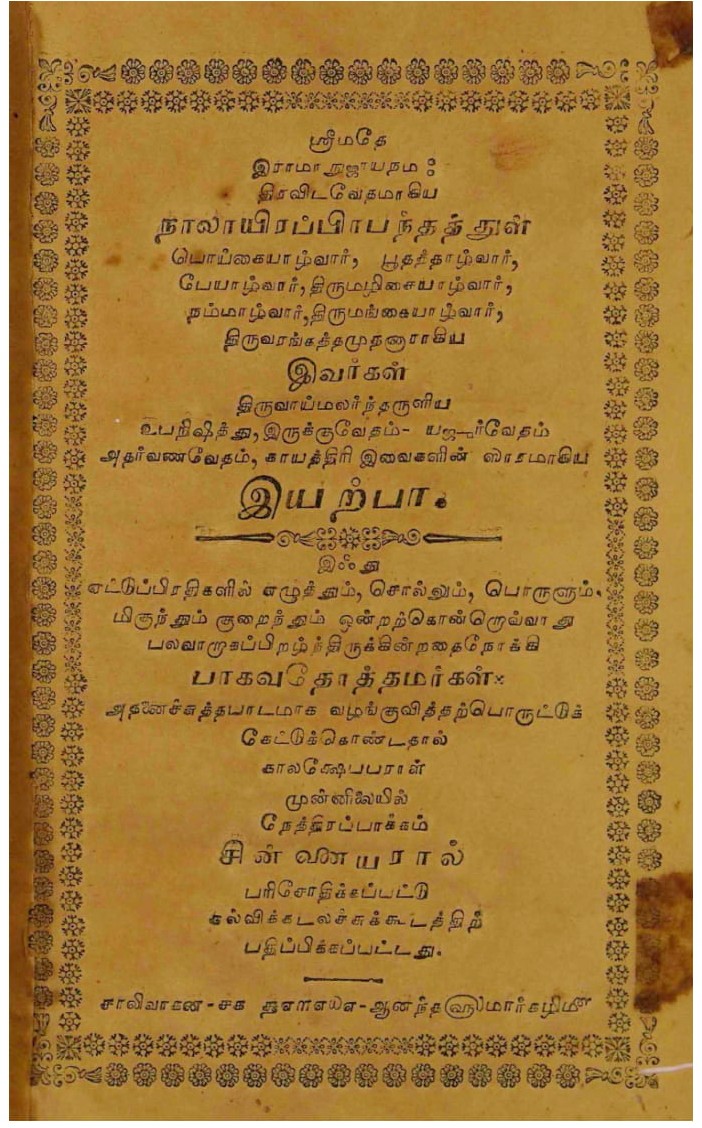 ஸ்ரீமதே
இராமாநுஜாயநம:
திரவிடவேதமாகிய
நாலாயிரப்பிரபந்தத்துள்
பொய்கையாழ்வார், பூதத்தாழ்வார்,
பேயாழ்வார், திருமழிசையாழ்வார்,
நம்மாழ்வார், திருமங்கையாழ்வார்,
திருவரங்கத்தமுதனாராகிய
இவர்கள்
திருவாய்மலர்ந்தருளிய
உபநிஷித்து, இருக்குவேதம்- யஜுர்வேதம்
அதர்வணவேதம், காயத்திரி இவைகளின் ஸாரமாகிய
இயற்பா.
இஃது
ஏட்டுப்பிரதிகளில் எழுத்தும், சொல்லும், பொருளும்,
மிகுந்தும் குறைந்தும் ஒன்றற்கொன்றொவ்வாது
பலவாறாகப்பிறழ்ந்திருக்கின்றதைநோக்கி
பாகவதோத்தமர்கள்
அதனைச்சுத்தபாடமாக வழங்குவித்தற்பொருட்டுக்
கேட்டுக்கொண்டதால்
காலக்ஷேபபராள்
முன்னிலையில்
நேத்திரப்பாக்கம்
சின்னையரால்
பரிசோதிக்கப்பட்டு
கல்விக்கடலச்சுக்கூடத்திற்
பதிப்பிக்கப்பட்டது.
சாலிவாகன-சக ஆனந்த௵மார்கழி௴